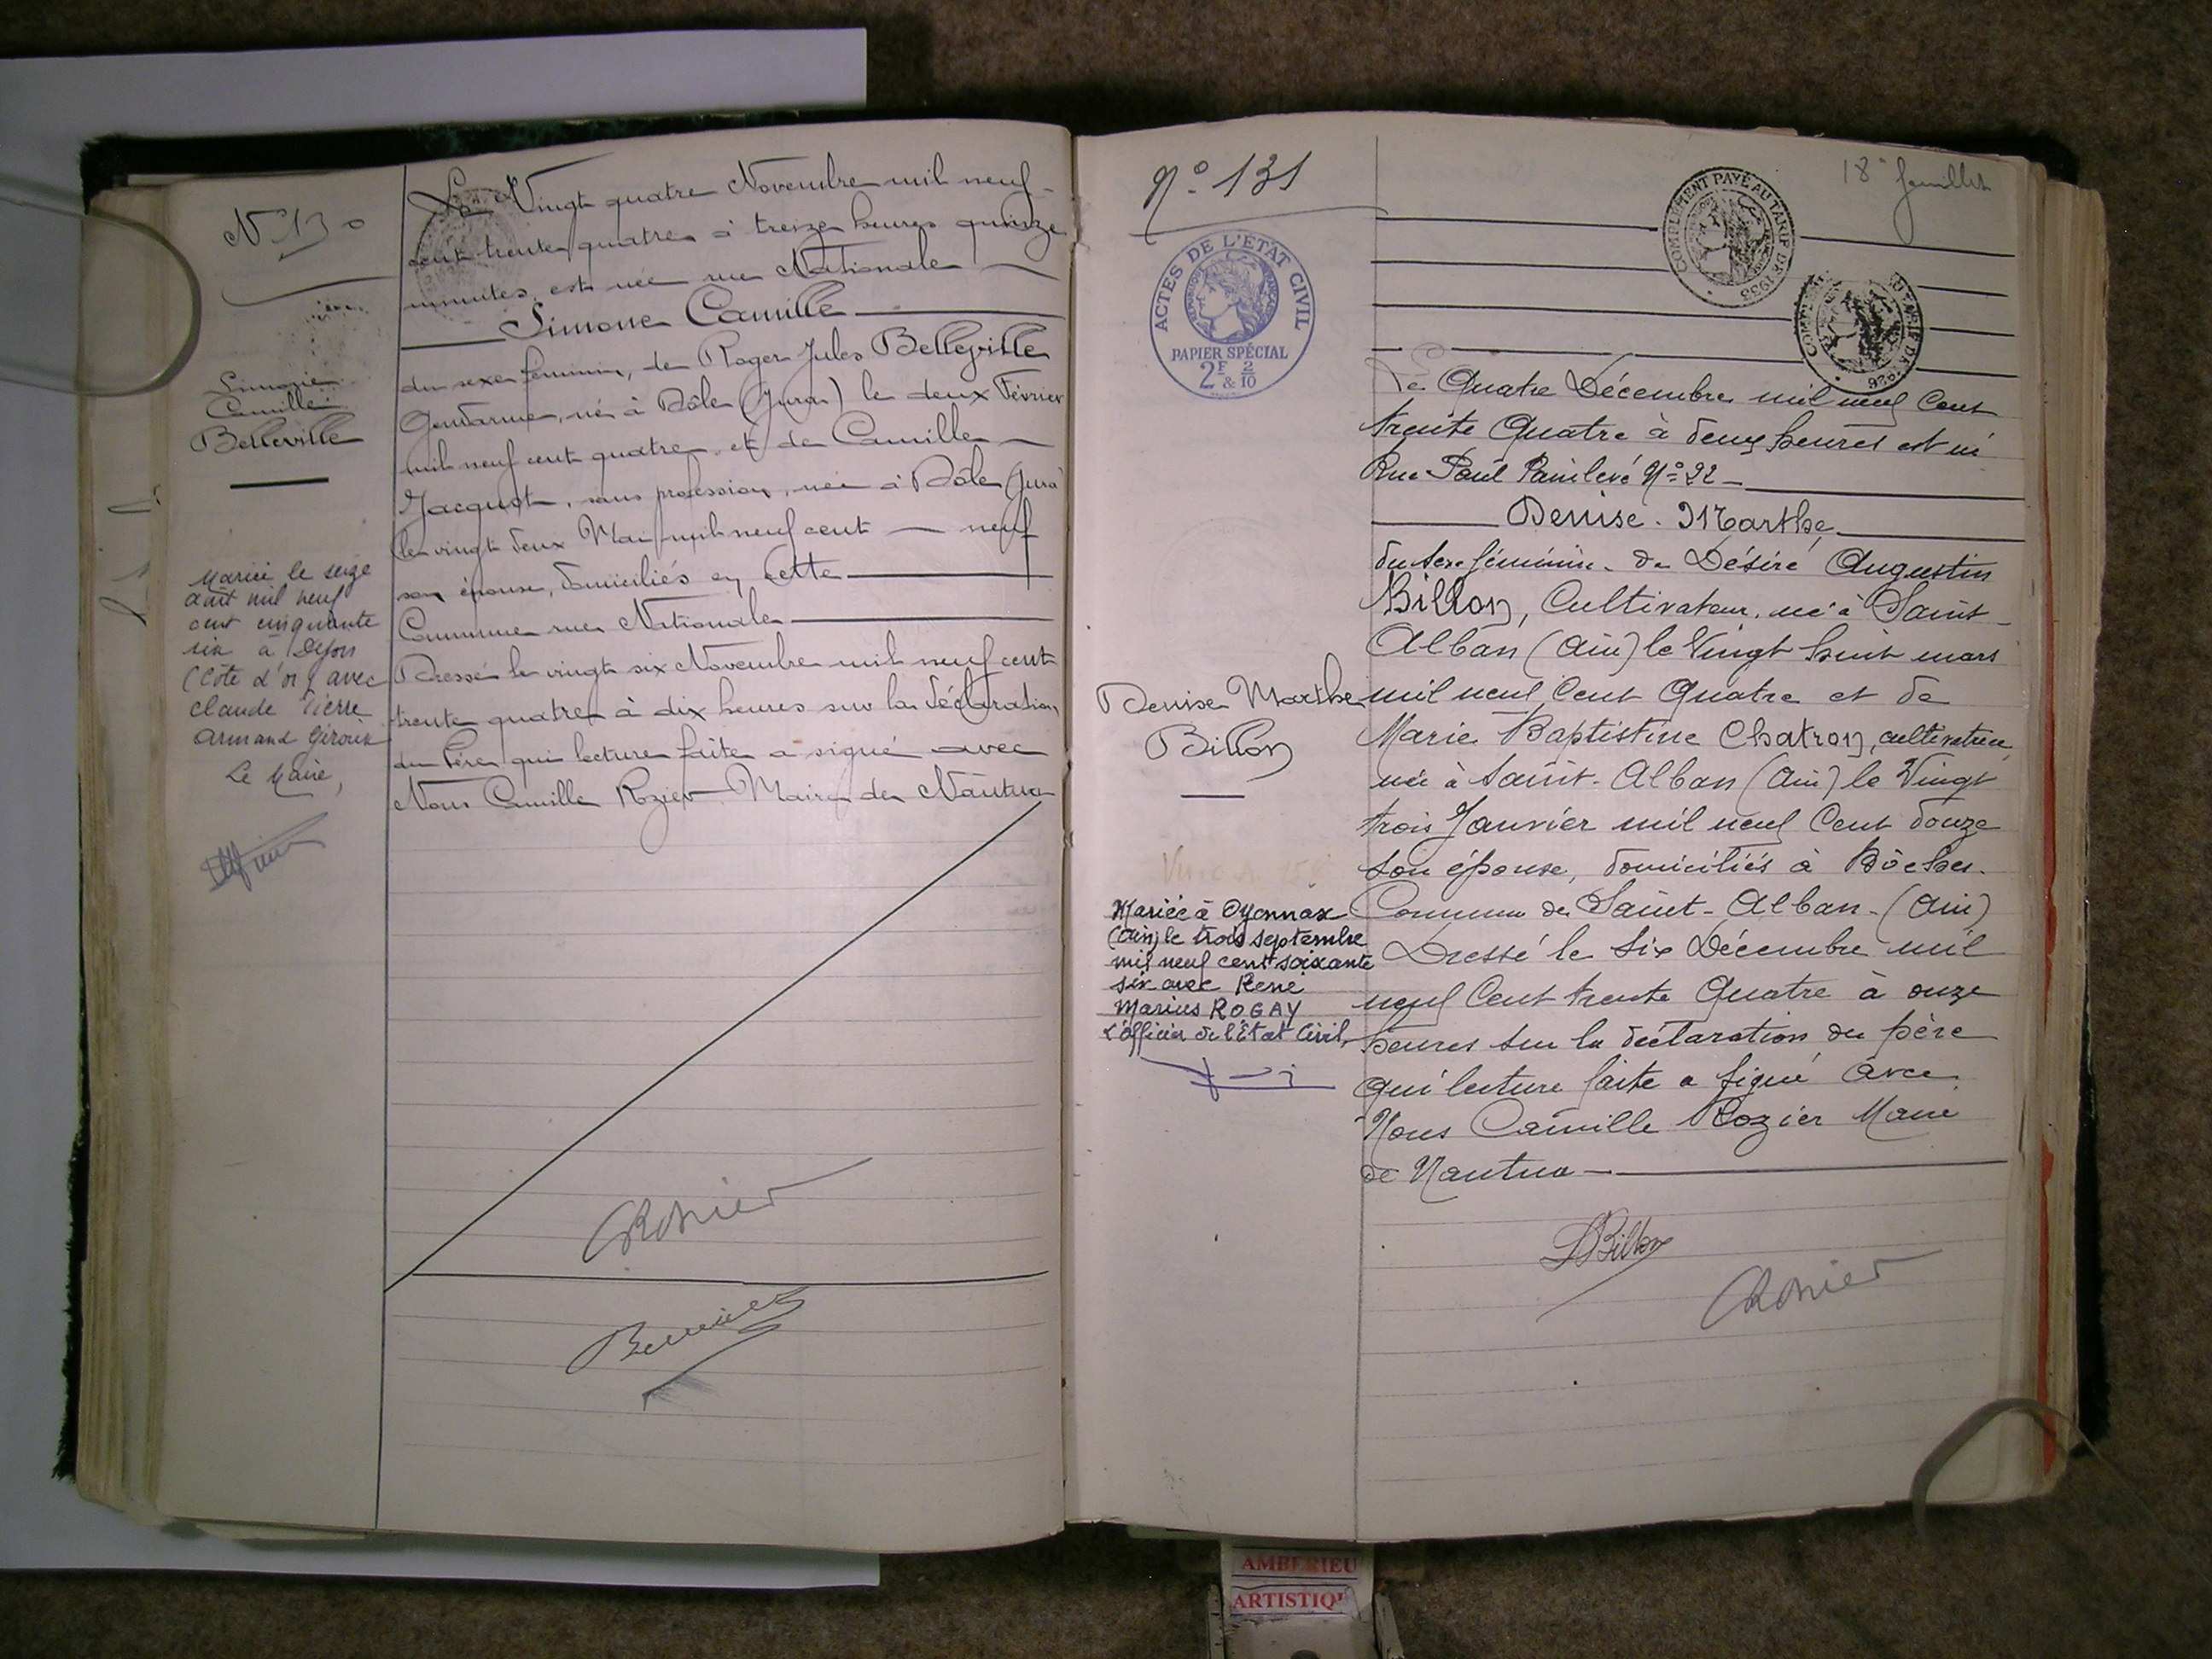 N° 130
Simone
Camille
Belleville
Mariée le seize
août mil neuf
cent cinquante
six à Dijon
(Côte d'or) avec
Claude Pierre
Armand Giroux
Le Maire,
Le Vingt quatre Novembre mil neuf
cent trente quatre à treize heures quinze
minutes, est née rue Nationale
Simone Camille
du sexe féminin, de Roger Jules Belleville
Gendarme, né à Dôle (Jura) le deux Février
mil neuf cent quatre, et de Camille
Jacquot, sans profession, née à Dôle (Jura)
le vingt deux Mai mil neuf cent neuf
son épouse, domiciliés en cette
Commune rue Nationale
Dressé le vingt six Novembre mil neuf cent
trente quatre à dix heures sur la déclaration
du Père qui lecture faite a signé avec
Nous Camille Rozier Maire de Nantua
CRozier
N° 131
ACTES DE L'ETAT CIVIL
PAPIER SPÉCIAL
2F & 2/10
Denise Marthe
Billon
Mariée à Oyonnax
(Ain) le trois septembre
mil neuf cent soixante
six avec René
Marius ROGAY
L'officier de l'Etat Civil,
18e feuillet
COMPLEMENT PAYÉ AU TARIF DE 1935
Le Quatre Décembre mil neuf Cent
trente Quatre à deux heures est né
Rue Paul Painlevé N° 22
Denise. Marthe
du sexe féminin. de Désiré Augustin
Billon, Cultivateur. né à Saint-
Alban (Ain) le Vingt huit mars
mil neuf Cent Quatre et de
Marie Baptistine Chatron, cultivatrice
née à Saint-Alban (Ain) le Vingt
trois Janvier mil neuf Cent douze
son épouse, domiciliés à Bôches.
Commune de Saint-Alban-(Ain)
Dressé le Six Décembre mil
neuf Cent trente Quatre à onze
heures sur la déclaration du père
qui lecture faite a signé avec
Nous Camille Rozier Maire
de Nantua
DBillon
CRozier
AMBERIEU
ARTISTIQ